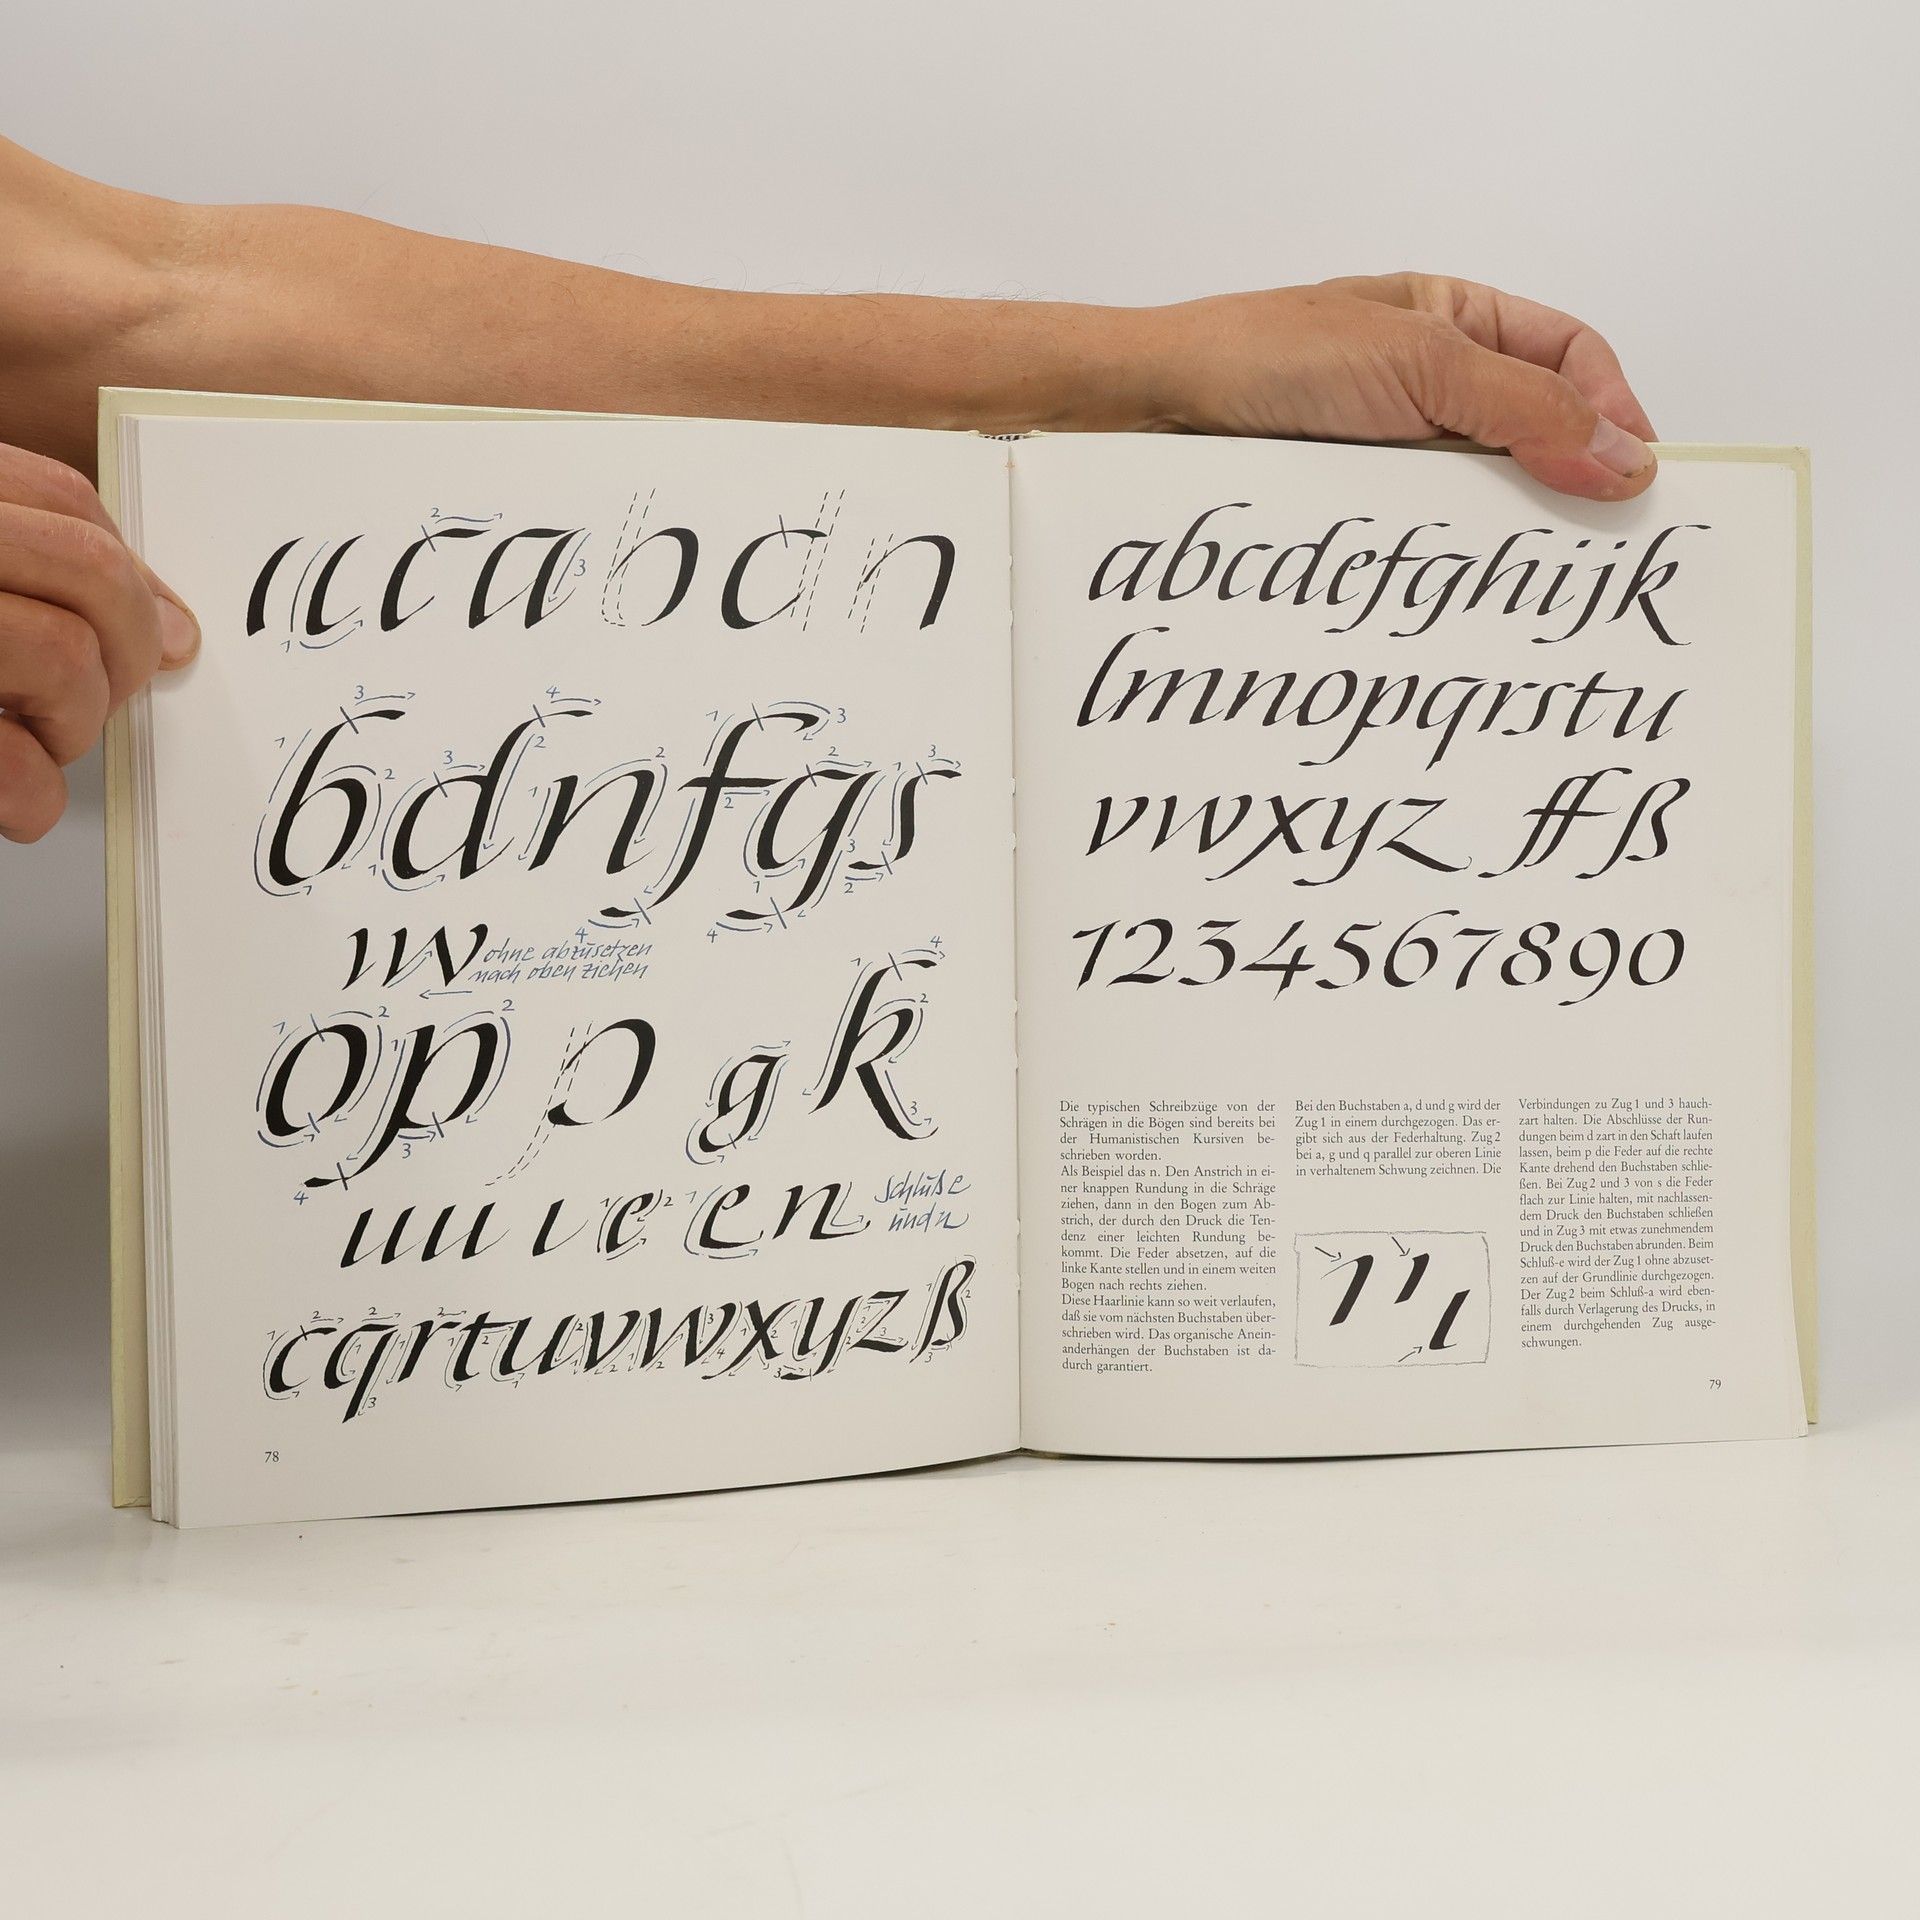 b d n f g s
ohne abzusetzen
nach oben ziehen
o p p g k
e e n
Schluß e
und n
c q r t u v w x y z ß
78
abcdefghijk
lmnopqrstu
vwxyz ff ß
1234567890
Die typischen Schreibzüge von der
Schrägen in die Bögen sind bereits bei
der Humanistischen Kursiven be-
schrieben worden.
Als Beispiel das n. Den Anstrich in ei-
ner knappen Rundung in die Schräge
ziehen, dann in den Bogen zum Ab-
strich, der durch den Druck die Ten-
denz einer leichten Rundung be-
kommt. Die Feder absetzen, auf die
linke Kante stellen und in einem weiten
Bogen nach rechts ziehen.
Diese Haarlinie kann so weit verlaufen,
daß sie vom nächsten Buchstaben über-
schrieben wird. Das organische Anein-
anderhängen der Buchstaben ist da-
durch garantiert.
Bei den Buchstaben a, d und g wird der
Zug 1 in einem durchgezogen. Das er-
gibt sich aus der Federhaltung. Zug 2
bei a, g und q parallel zur oberen Linie
in verhaltenem Schwung zeichnen. Die
Verbindungen zu Zug 1 und 3 hauch-
zart halten. Die Abschlüsse der Run-
dungen beim d zart in den Schaft laufen
lassen, beim p die Feder auf die rechte
Kante drehend den Buchstaben schlie-
ßen. Bei Zug 2 und 3 von s die Feder
flach zur Linie halten, mit nachlassen-
dem Druck den Buchstaben schließen
und in Zug 3 mit etwas zunehmendem
Druck den Buchstaben abrunden. Beim
Schluß-e wird der Zug 1 ohne abzuset-
zen auf der Grundlinie durchgezogen.
Der Zug 2 beim Schluß-a wird eben-
falls durch Verlagerung des Drucks, in
einem durchgehenden Zug ausge-
schwungen.
79